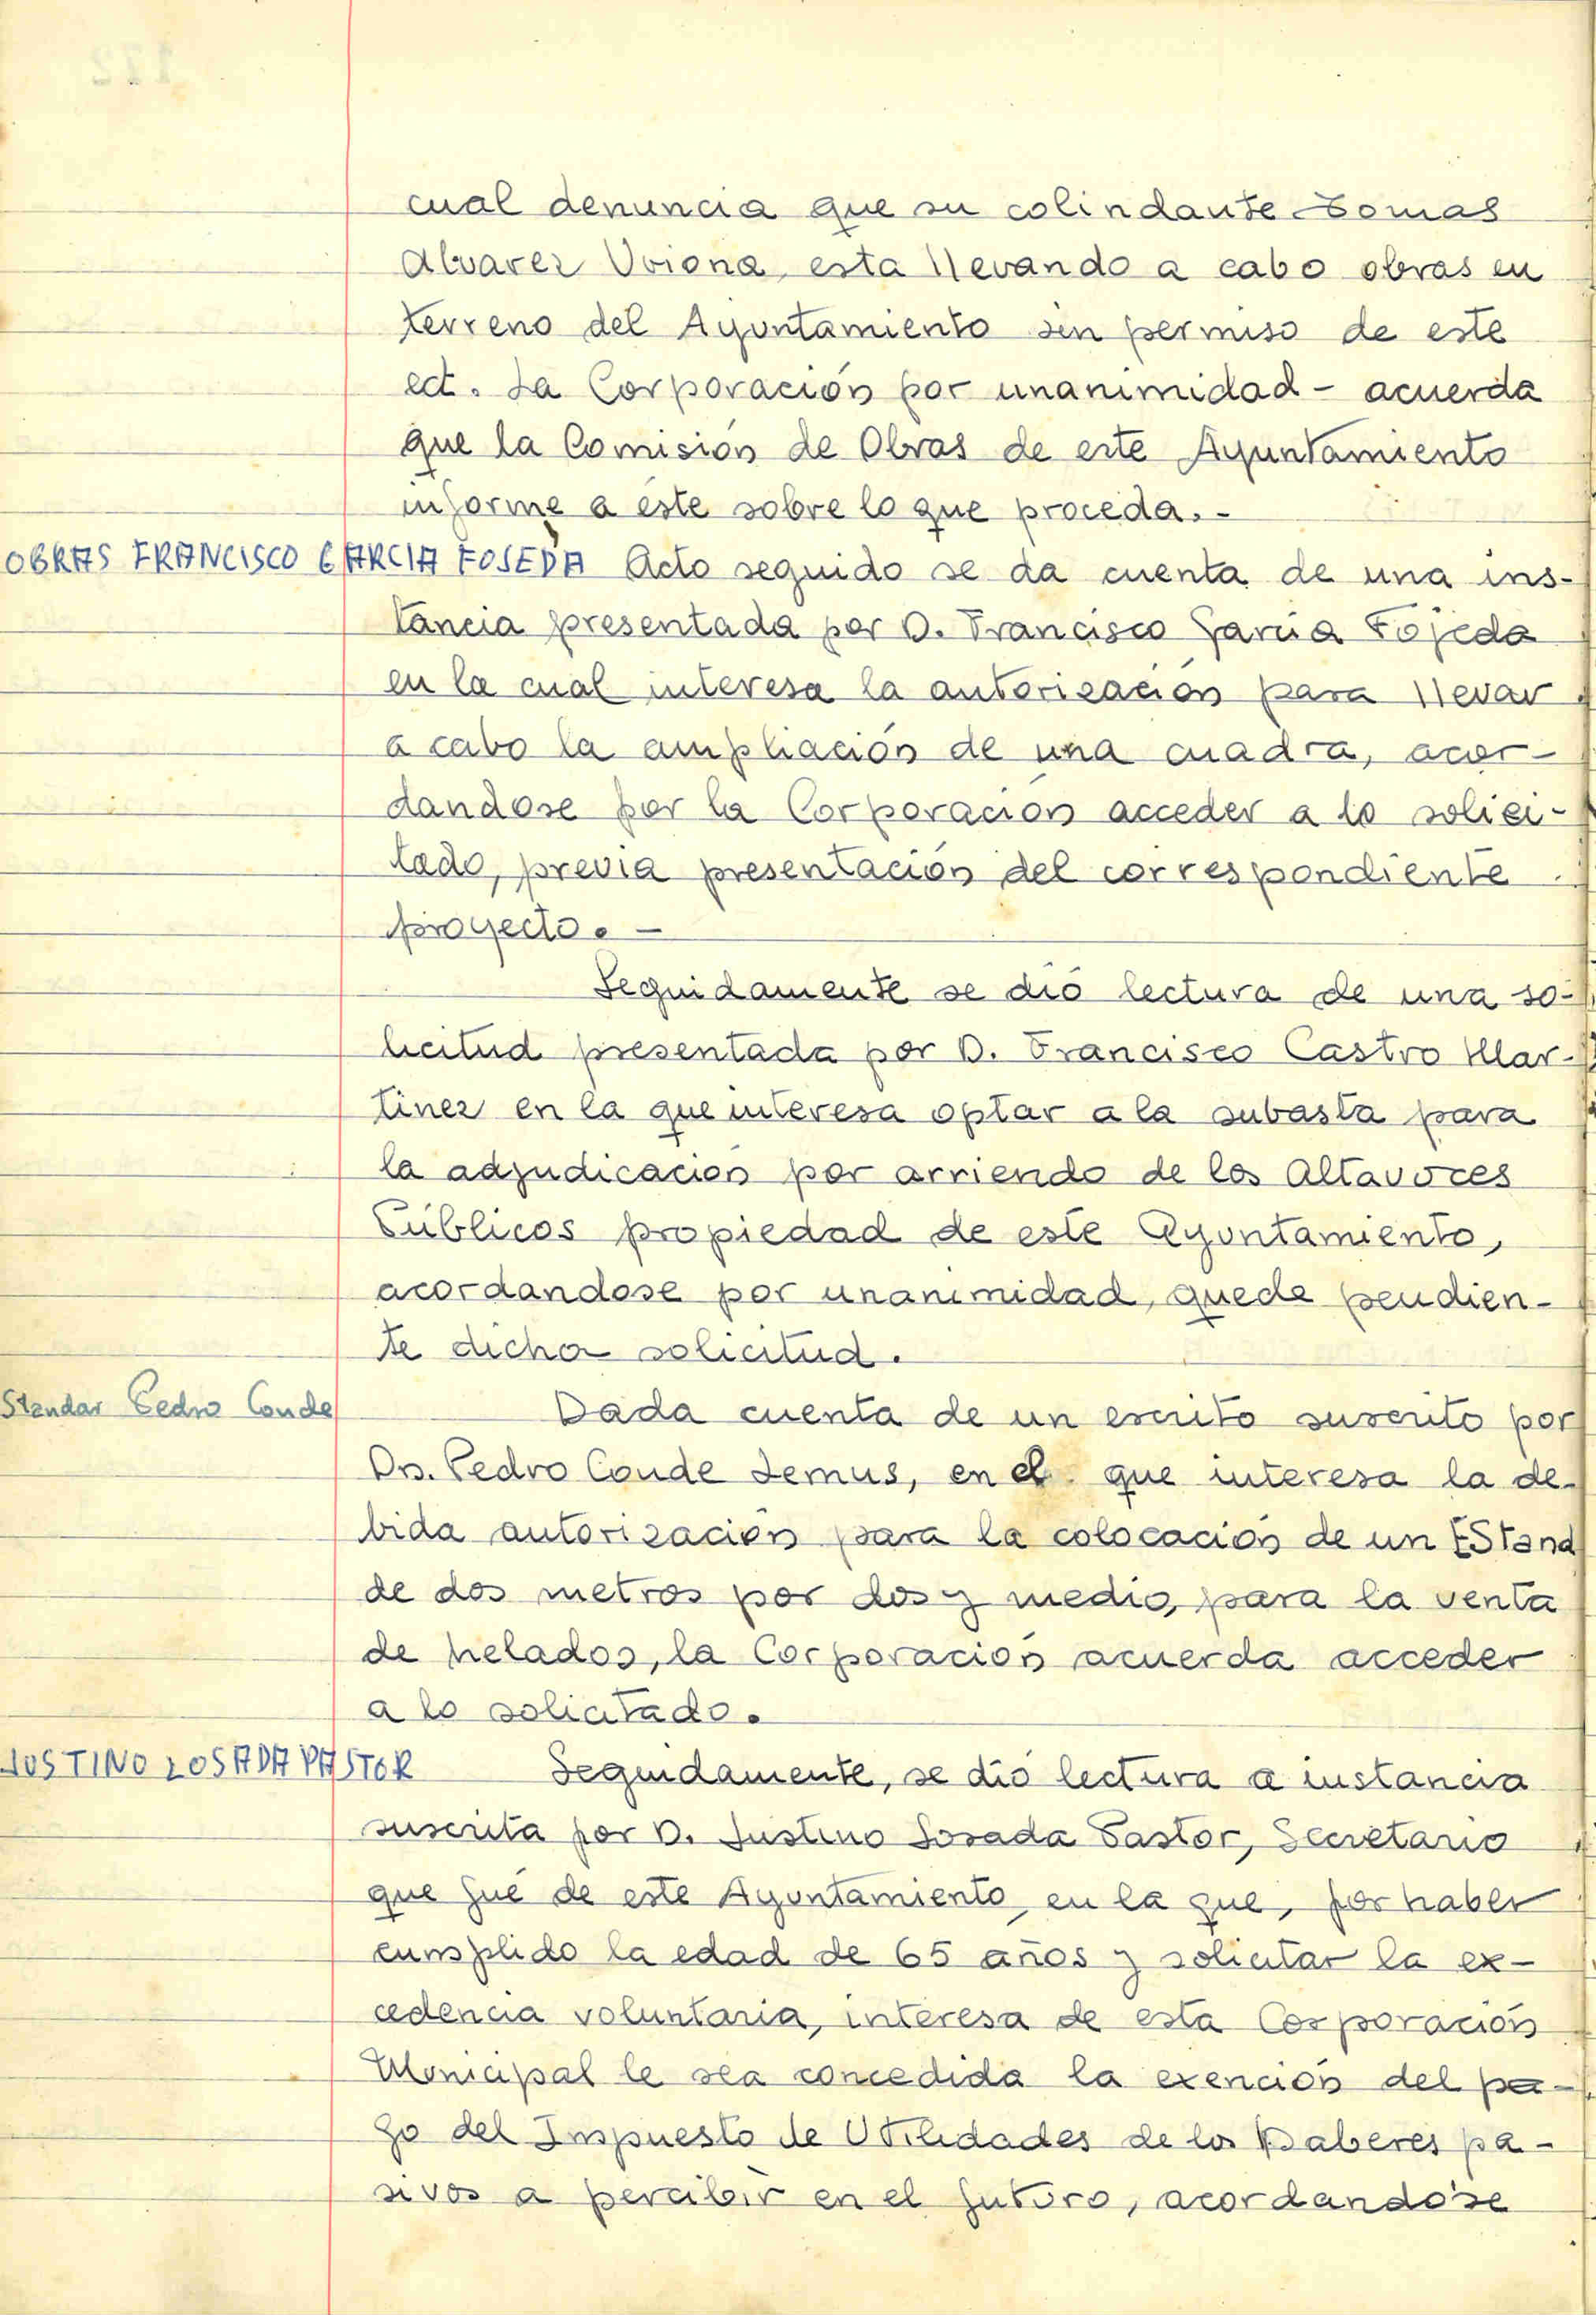 cual denuncia que su colindante Tomas
Alvarez Viona, esta llevando a cabo obras en
terreno del Ayuntamiento sin permiso de este
ect. La Corporación por unanimidad - acuerda
que la Comision de Obras de este Ayuntamiento
informe a este sobre lo que proceda. -
OBRAS FRANCISCO GARCIA TOJEDA Acto seguido se da cuenta de una ins-
tancia presentada por D. Francisco Garcia Tojeda
en la cual interesa la autorización para llevar
a cabo la ampliación de una cuadra, acor-
dandose por la Corporación acceder a lo solici-
tado, previa presentación del correspondiente
proyecto. -
Seguidamente se dió lectura de una so-
licitud presentada por D. Francisco Castro Mar-
tinez en la que interesa optar a la subasta para
la adjudicacion por arriendo de los Altavoces
Públicos propiedad de este Ayuntamiento,
acordandose por unanimidad, quede pendien-
te dicha solicitud.
Standar Pedro Conde
Dada cuenta de un escrito suscrito por
Dn. Pedro Conde Lemus, en el que interesa la de-
bida autorización para la colocación de un EStand
de dos metros por dos y medio, para la venta
de helados, la Corporación acuerda acceder
a lo solicitado.
JUSTINO LOSADA PASTOR Seguidamente, se dió lectura a instancia
suscrita por D. Justino Losada Pastor, Secretario
que fué de este Ayuntamiento en la que, por haber
cumplido la edad de 65 años y solicitar la ex-
cedencia voluntaria, interesa de esta Corporación
Municipal le sea concedida la exención del pa-
go del Impuesto de Utilidades de los Haberes pa-
sivos a percibir en el futuro, acordandose